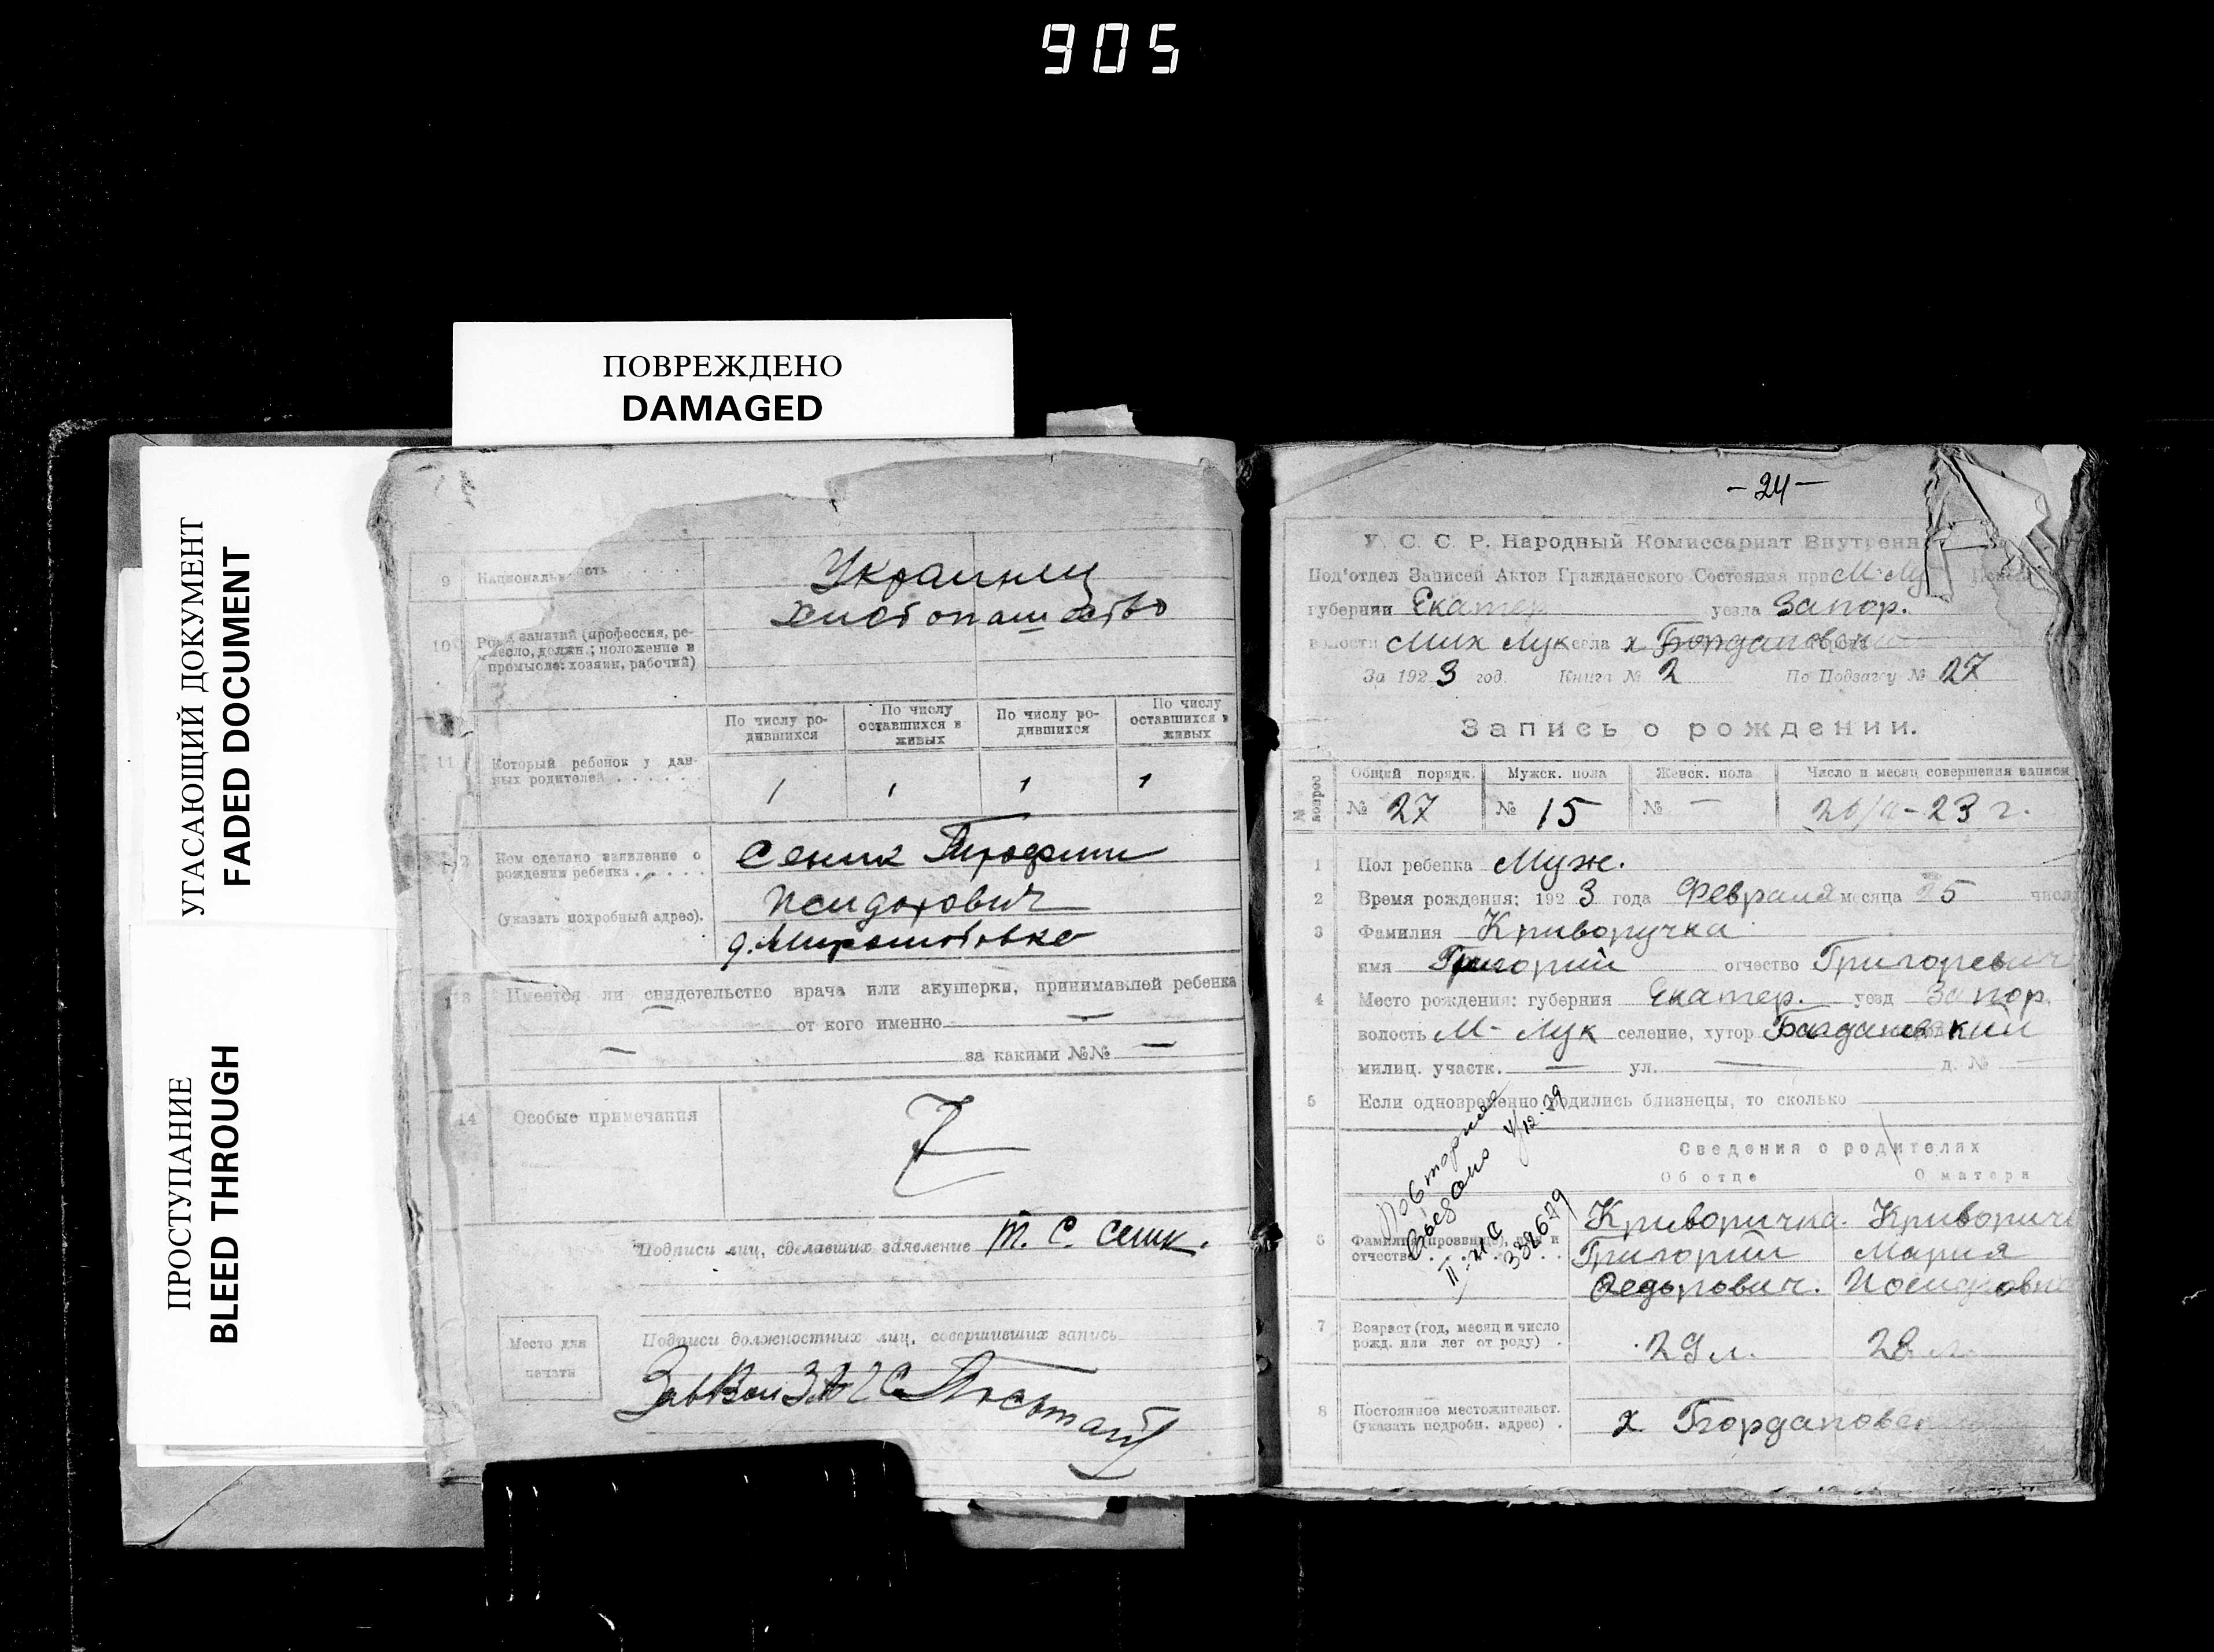 905
ПОВРЕЖДЕНО
DAMAGED
УГАСАЮЩИЙ ДОКУМЕНТ
FADED DOCUMENT
ПРОСТУПАНИЕ
BLEED THROUGH
9 Национальность Украинец
10 Род занятий (профессия, ре-
месло, должн.; положение в
промысле: хозяин, рабочий)
По числу ро-
дившихся
По числу
оставшихся в
живых
По числу ро-
дившихся
По числу
оставшихся в
живых
11 Который ребенок у дан-
ных родителей
1 1 1 1
12 Кем сделано заявление о
рождении ребенка
(указать подробный адрес).
Сеник Трофим
Исидорович
13 Имеется ли свидетельство врача или акушерки, принимавшей ребенка
— от кого именно —
— за какими №№ —
14 Особые примечания
Подписи лиц, сделавших заявление Т. С. Сеник.
Место для
печати
Подписи должностных лиц, совершивших запись
— 24 —
У. С. С. Р. Народный Комиссариат Внутренн
Под'отдел Записей Актов Гражданского Состояния при М-Лу
губернии Екатер уезда Запор.
волости Мих Лук села х
За 1923 год. Книга № 2 По Подзагсу № 27
Запись о рождении.
№ вопрос
Общий порядк. Мужск. пола Женск. пола Число и месяц совершения записи
№ 27 № 15 № — - 23 г.
1 Пол ребенка Муж.
2 Время рождения: 1923 года Февраля месяца 25 числ
3 Фамилия Криворучка
имя Григорий отчество Григоревич
4 Место рождения: губерния Екатер. уезд Запор.
волость М-Лук селение, хутор Богдановский
милиц. участк. — ул. — д. № —
5 Если одновременно родились близнецы, то сколько
Сведения о родителях
Об отце О матери
Повторное
выдано 4/12-79
II-ЖС
332679
6 Фамилия (прозвище), имя и
отчество
Криворичка. Криворич
Григорий Мария
Федорович.
7 Возраст (год, месяц и число
рожд. или лет от роду)
29 л. 28 л.
8 Постоянное местожительст.
(указать подробн. адрес)
х